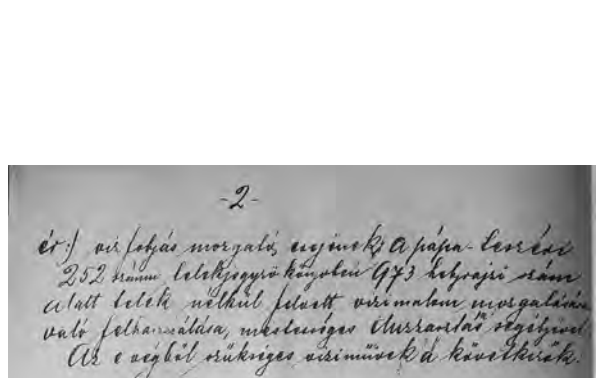 -2-
ér:/ viz folyás mozgató erejének; A pápa-teszéri
252 számu telekjegyzőkönyvben 973 helyrajzi szám
alatt telek nélkül felvett vizimalom mozgatására
való felhasználása, mesterséges duzzasztás segélyével.
Az e végből szükséges vizimüvek a következők.